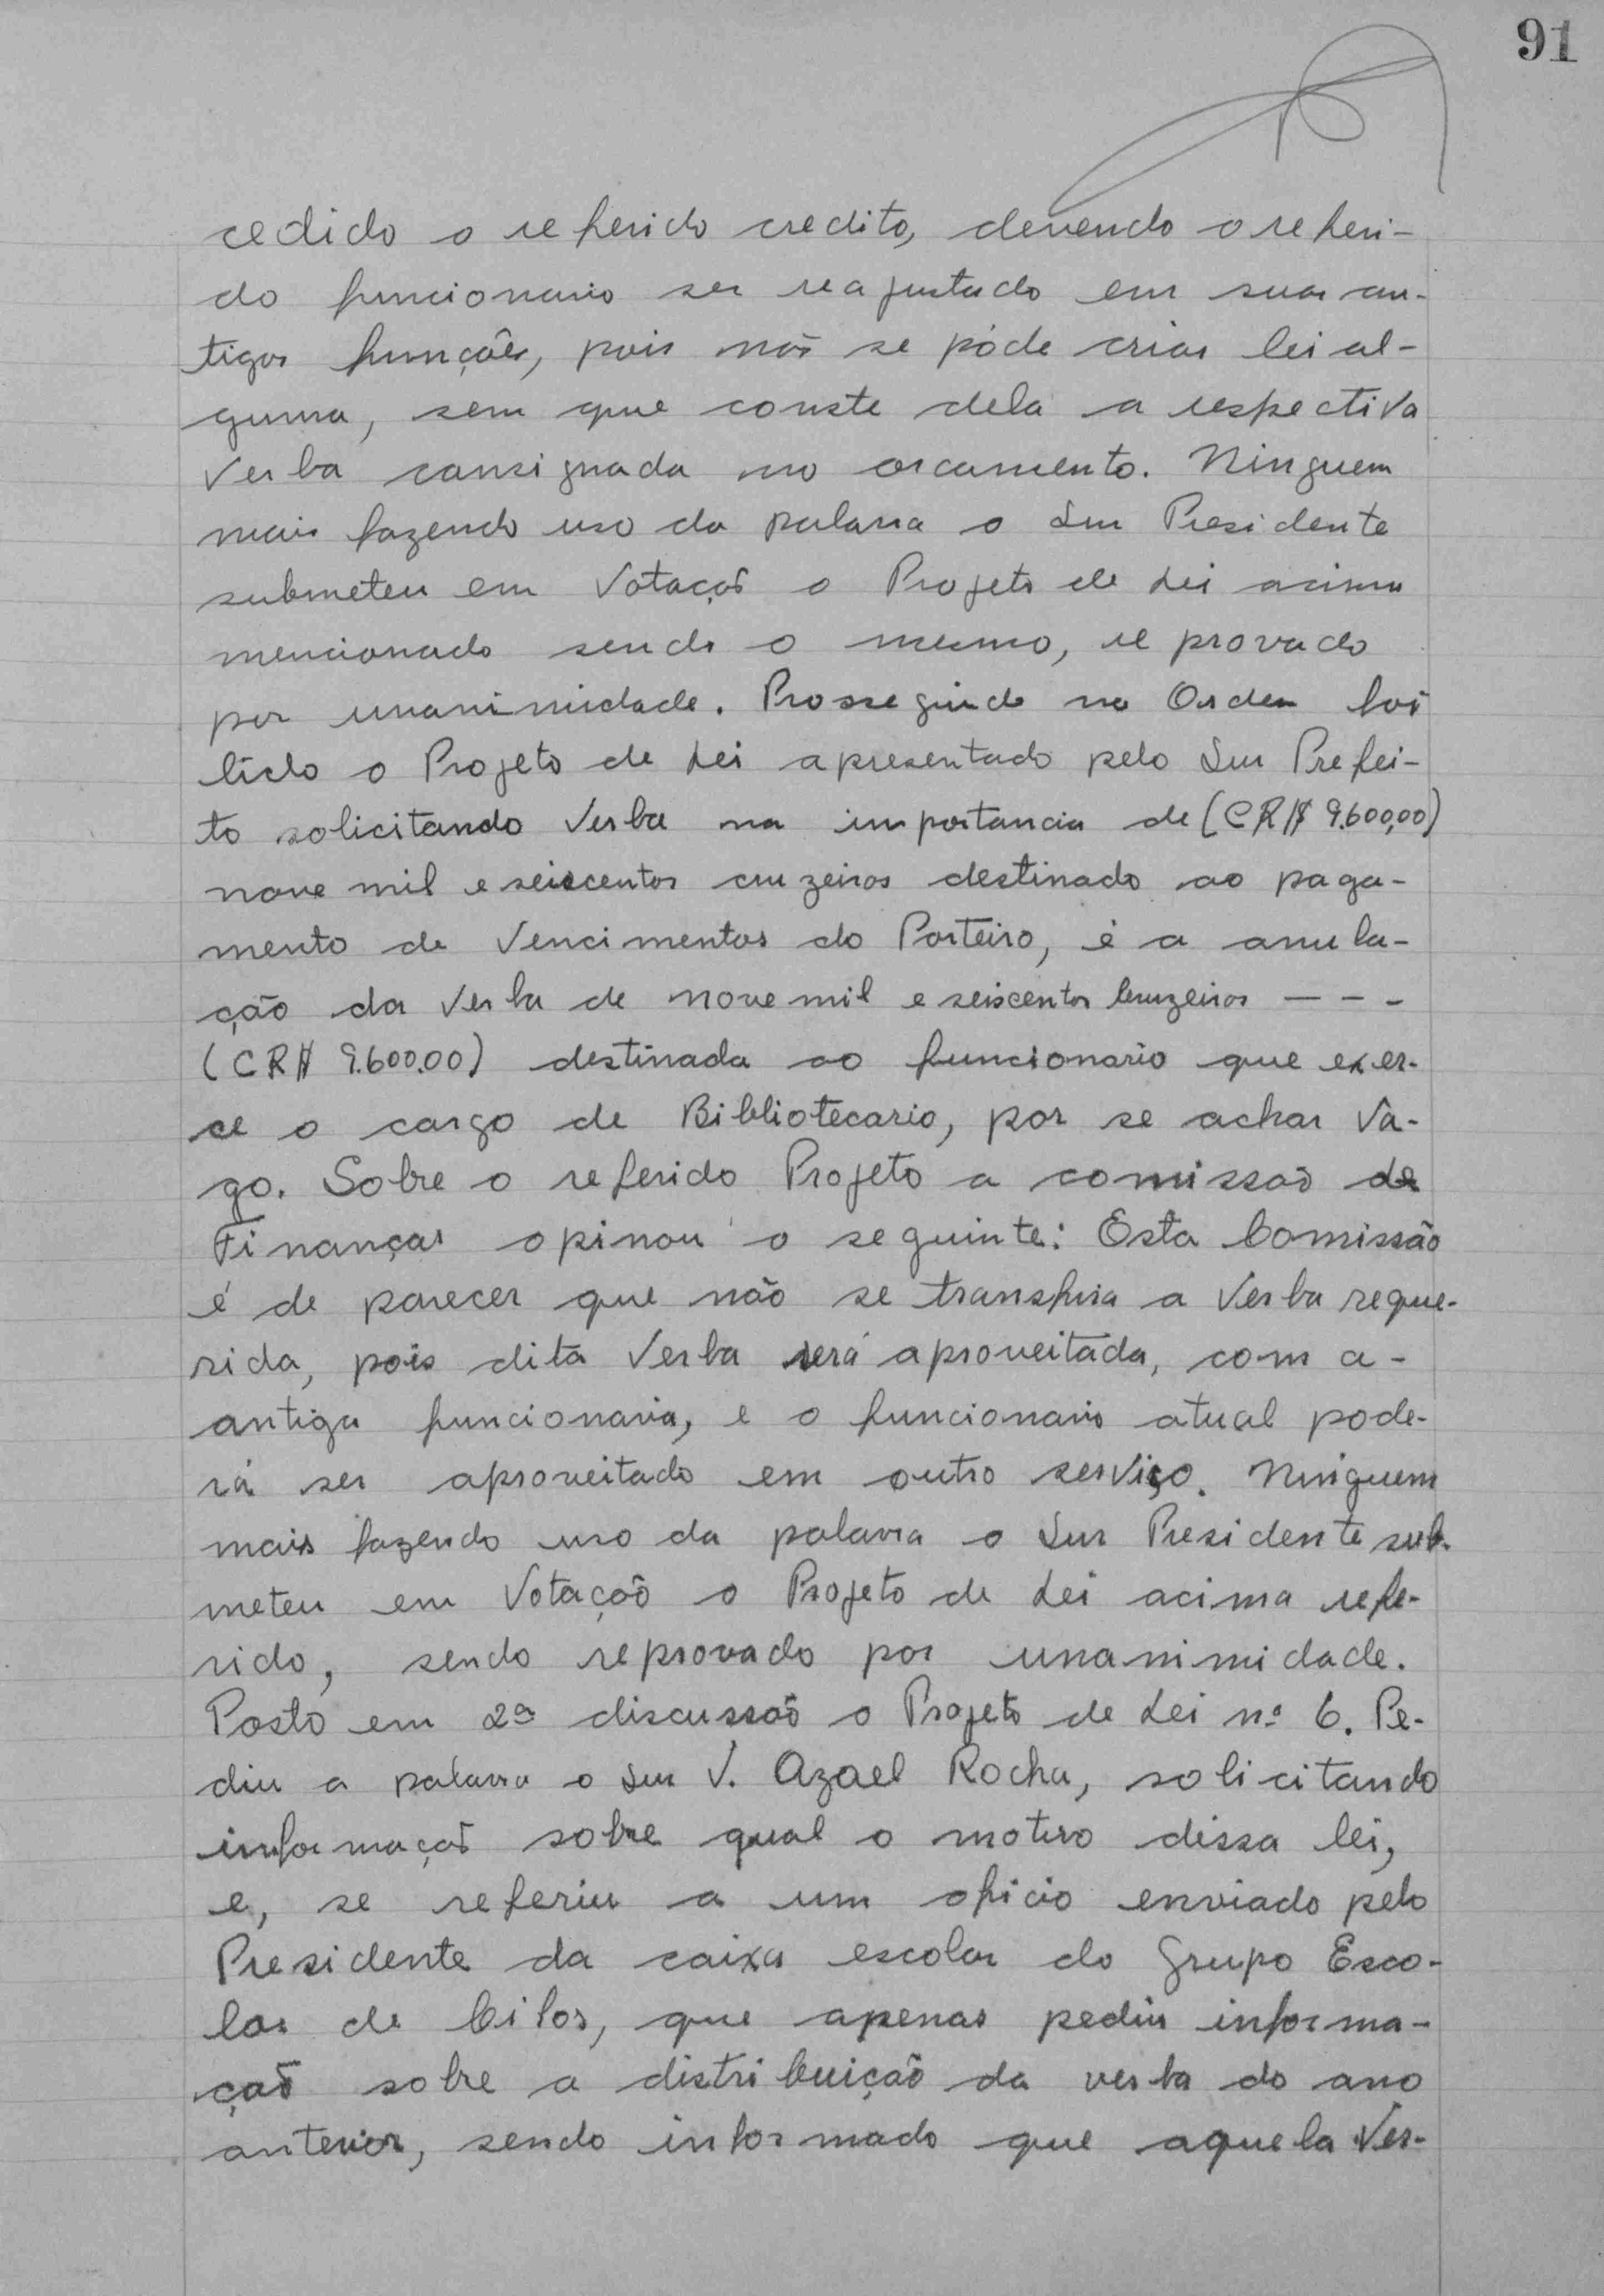 91
cedido o referido credito, devendo o referi-
do funcionario ser reajustado em suas an-
tigas funções, pois não se póde criar lei al-
guma, sem que conste dela a respectiva
Verba consignada no orcamento. Ninguem
mais fazendo uso da palavra o Snr Presidente
submeteu em Votação o Projeto de Lei acima
mencionado sendo o mesmo, reprovado
por unanimidade. Prosseguindo na Ordem foi
lido o Projeto de Lei apresentado pelo Snr Prefei-
to solicitando Verba na importancia de (CR$ 9.600,00)
nove mil e seiscentos cruzeiros destinado ao paga-
mento de Vencimentos do Porteiro, é a anula-
ção da Verba de nove mil e seiscentos Cruzeiros - - -
(CR$ 9.600.00) destinada ao funcionario que exer-
ce o cargo de Bibliotecario, por se achar Va-
go. Sobre o referido Projeto a comissão de
Finanças opinou o seguinte: Esta Comissão
é de parecer que não se transfira a Verba reque-
rida, pois dita Verba será aproveitada, com a-
antiga funcionaria, e o funcionario atual pode-
rá ser aproveitado em outro serviço. Ninguem
mais fazendo uso da palavra o Snr Presidente sub-
meteu em Votação o Projeto de Lei acima refe-
rido, sendo reprovado por unanimidade.
Posto em 2ª discussão o Projeto de Lei nº 6. Pe-
diu a palavra o Snr V. Azael Rocha, solicitando
informação sobre qual o motivo dessa lei,
e, se referiu a um oficio enviado pelo
Presidente da caixa escolar do Grupo Esco-
lar de que apenas pediu informa-
ção sobre a distribuição da verba do ano
anterior, sendo informado que aquela Ver-